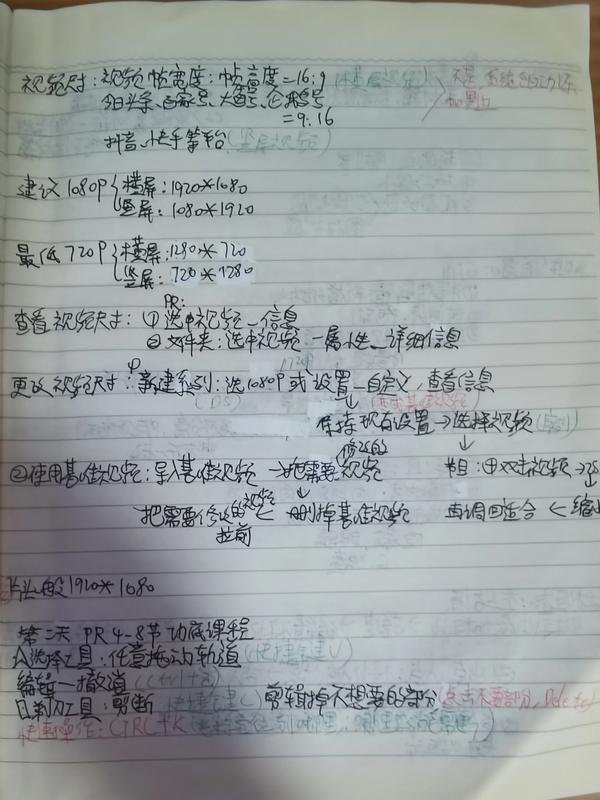 视频尺寸:视频帧宽度:帧高度=16:9(横屏视频)
今日头条、百家号、大鱼号、企鹅号
=9:16
抖音、快手等平台(竖屏视频)
建议1080P{横屏:1920*1080
竖屏:1080*1920
最低720P{横屏:1280*720
竖屏:720*1280
PR:
查看视频尺寸:①选中视频—信息
②文件夹:选中视频—属性—详细信息
更改视频尺寸:①新建系列:选1080P或设置—自定义,查看信息
保持现有设置→选择视频
②使用基准视频:导入基准视频→把需要修改的视频
把需要修改的视频←删掉基准视频
拉前
再调回适合←缩
片头一般1920*1080
第二天PR4-8节功底课程
选择工具:任意拖动轨道(快捷键V)
编辑—撤道(Ctrl+Z)
剃刀工具:剪断(快捷键C)剪辑掉不想要的部分(点击不要部分,Delete)
快捷操作:CTRL+K